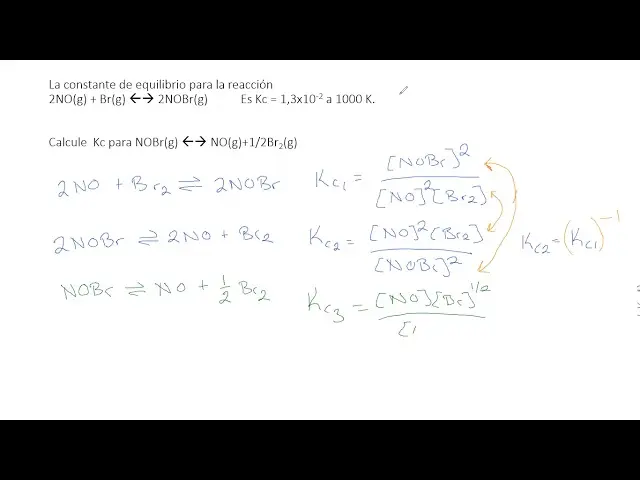 La constante de equilibrio para la reacción
2NO(g) + Br(g) ←→ 2NOBr(g) Es Kc = 1,3x10⁻² a 1000 K.
Calcule Kc para NOBr(g) ←→ NO(g)+1/2Br₂(g)
2NO + Br₂ ⇌ 2NOBr Kc₁ = [NOBr]² / [NO]²[Br₂]
2NOBr ⇌ 2NO + Br₂ Kc₂ = [NO]²[Br₂] / [NOBr]² Kc₂ = (Kc₁)⁻¹
NOBr ⇌ NO + 1/2 Br₂ Kc₃ = [NO][Br]^1/2 / [